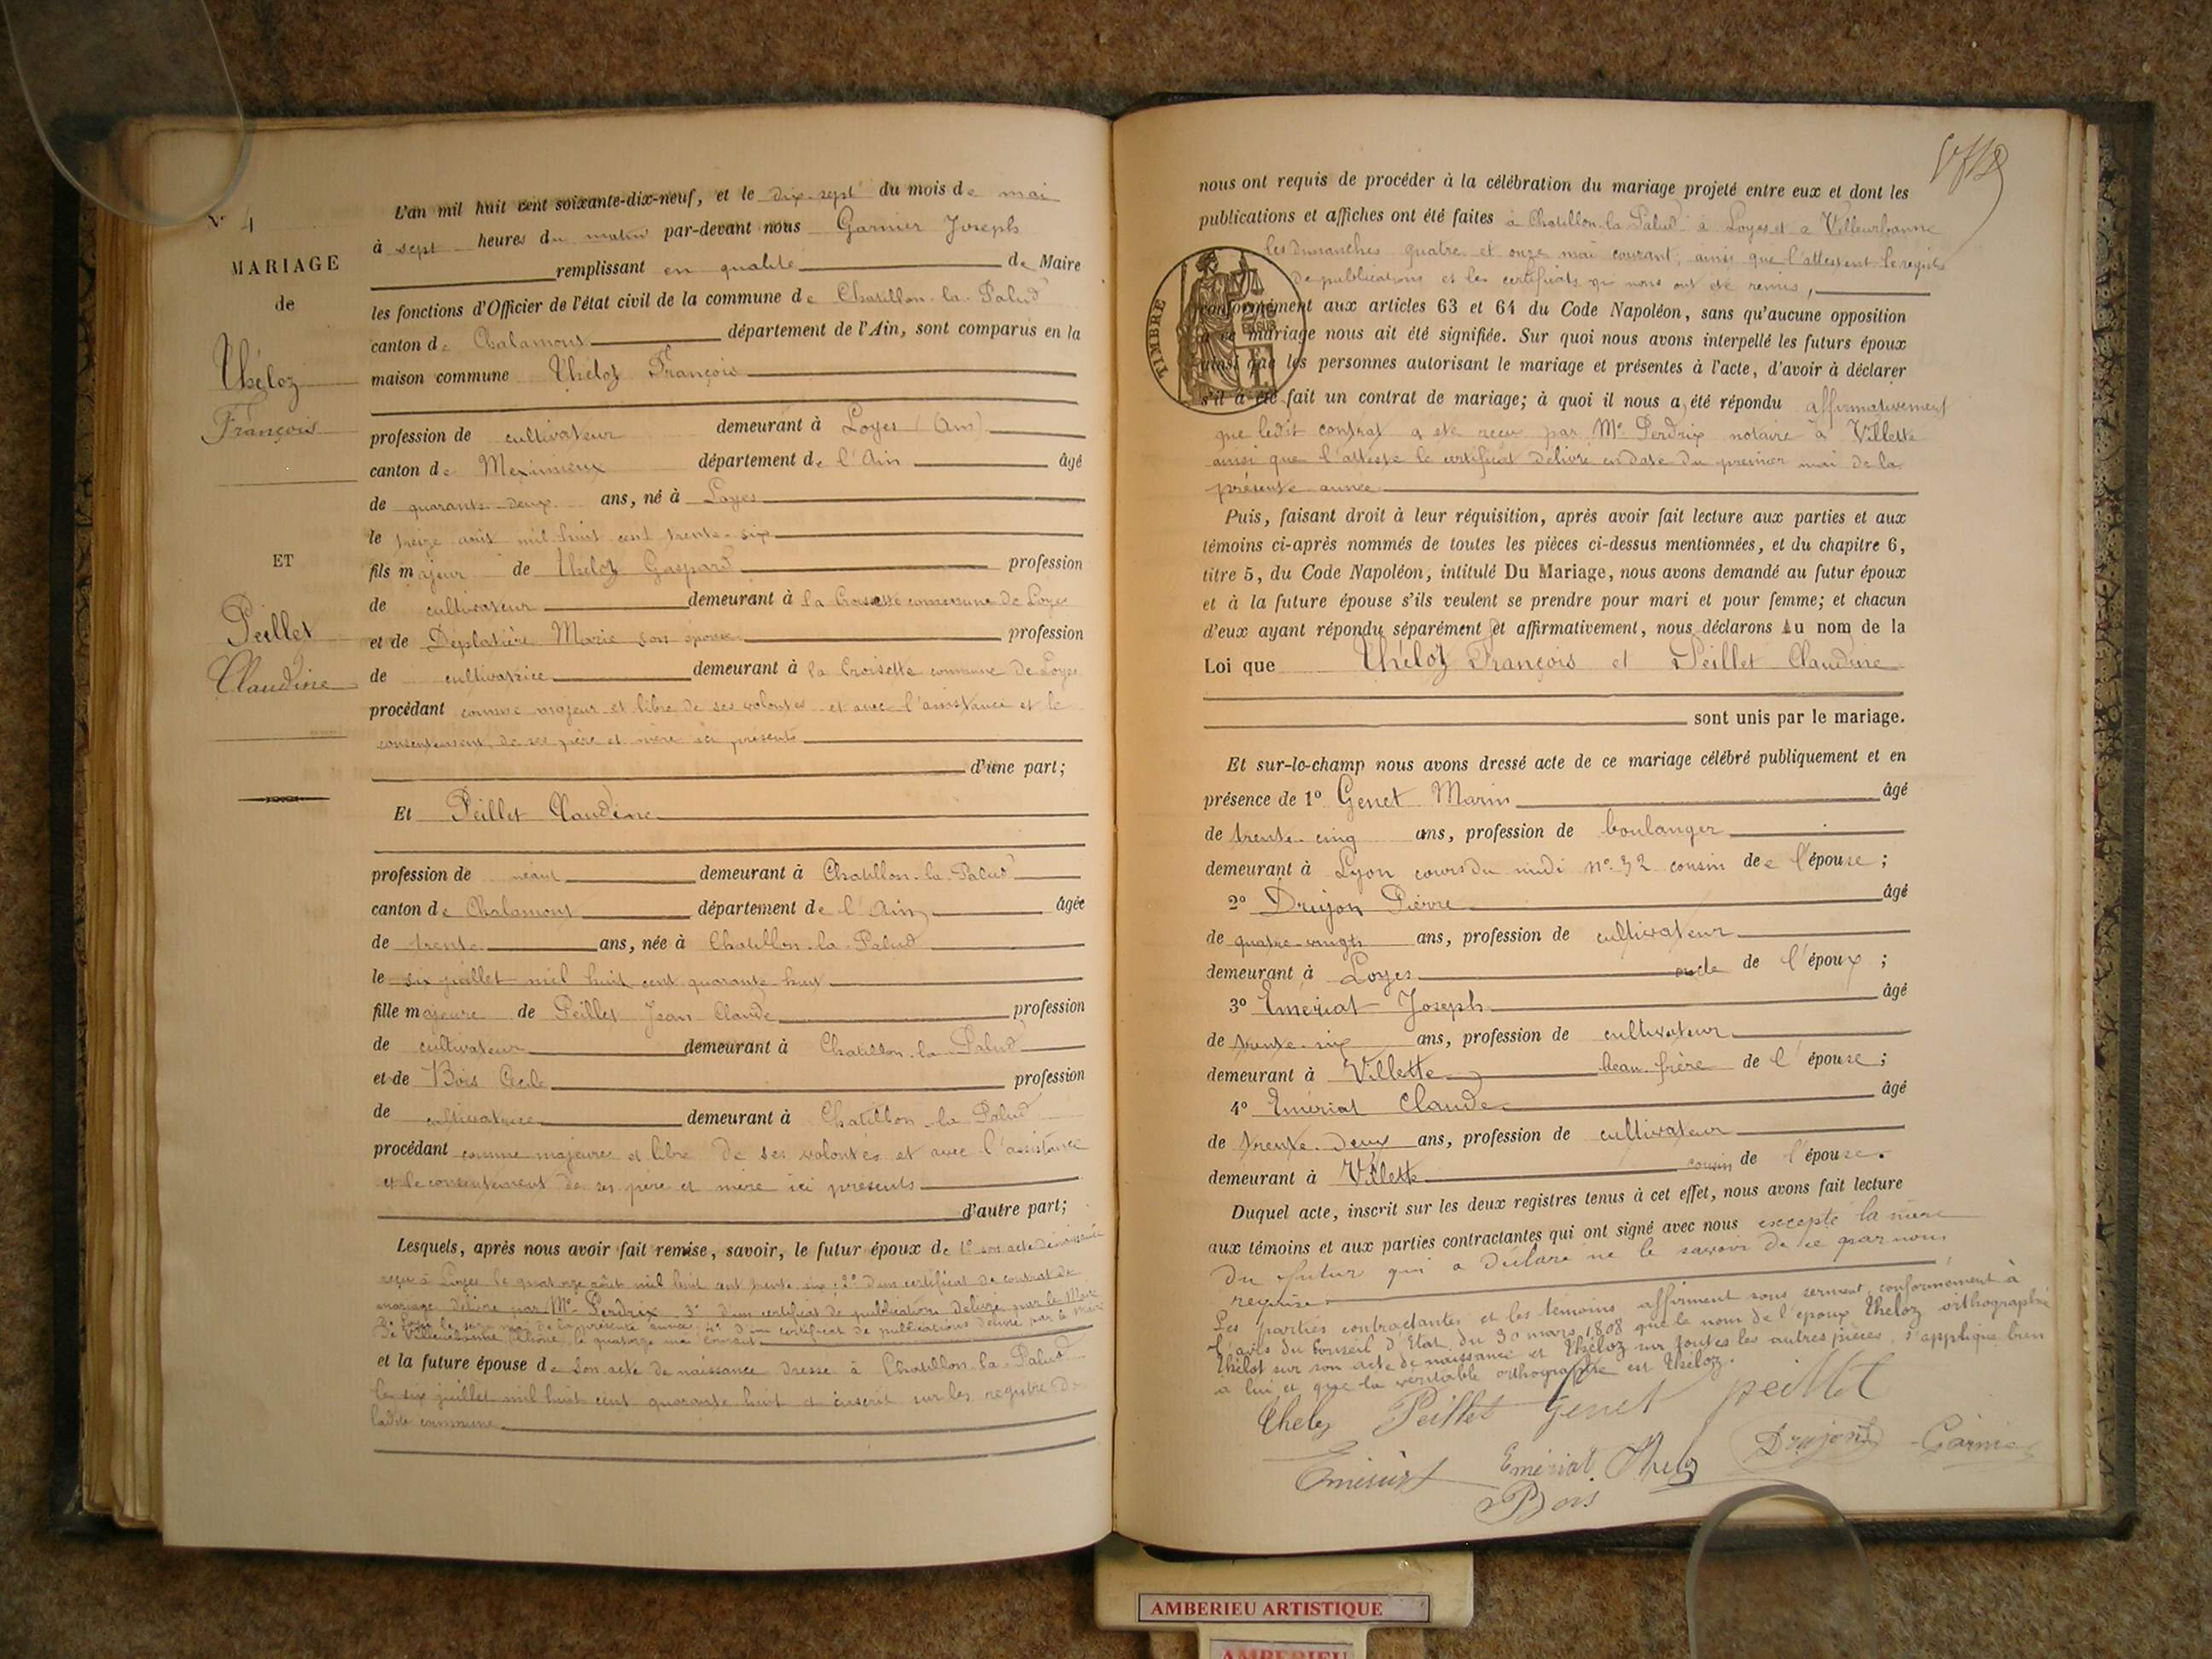 N° 4
MARIAGE
de
Théloz
François
ET
Peillet
Claudine
L'an mil huit cent soixante-dix-neuf, et le dix-sept du mois de mai
à sept heures du matin par-devant nous Garnier Joseph
remplissant en qualité de Maire
les fonctions d'Officier de l'état civil de la commune de Chatillon-la-Palud
canton de Chalamont département de l'Ain, sont comparus en la
maison commune Théloz François
profession de cultivateur demeurant à Loyes (Ain)
canton de Meximieux département de l'Ain âgé
de quarante-deux ans, né à Loyes
le treize août mil huit cent trente-six
fils majeur de Théloz Gaspard profession
de cultivateur demeurant à la Croisette commune de Loyes
et de Déplatière Marie son épouse profession
de cultivatrice demeurant à la Croisette commune de Loyes
procédant comme majeur et libre de ses volontés et avec l'assistance et le
consentement de ses père et mère ici présents
d'une part;
Et Peillet Claudine
profession de néant demeurant à Chatillon-la-Palud
canton de Chalamont département de l'Ain âgée
de trente ans, née à Chatillon-la-Palud
le six juillet mil huit cent quarante-huit
fille majeure de Peillet Jean Claude profession
de cultivateur demeurant à Chatillon-la-Palud
et de Bois Cécile profession
de cultivatrice demeurant à Chatillon-la-Palud
procédant comme majeure et libre de ses volontés et avec l'assistance
et le consentement de ses père et mère ici présents
d'autre part;
Lesquels, après nous avoir fait remise, savoir, le futur époux de 1° son acte de naissance
reçu à Loyes le quatorze août mil huit cent trente six; 2° d'un certificat de contrat de
mariage délivré par Me Perdrix 3° d'un certificat de publications délivré par le Maire
de Loyes le seize mai de la présente année; 4° d'un certificat de publications délivré par le Maire
de Villeurbanne, Rhône, le quatorze mai courant
et la future épouse de son acte de naissance dressé à Chatillon-la-Palud
le six juillet mil huit cent quarante huit et inscrit sur les registre de
ladite commune
nous ont requis de procéder à la célébration du mariage projeté entre eux et dont les
publications et affiches ont été faites à Chatillon-la-Palud à Loyes et à Villeurbanne
les dimanches quatre et onze mai courant, ainsi que l'attestent le registre
de publications et les certificats qui nous ont été remis,
TIMBRE
conformément aux articles 63 et 64 du Code Napoléon, sans qu'aucune opposition
à ce mariage nous ait été signifiée. Sur quoi nous avons interpellé les futurs époux
ainsi que les personnes autorisant le mariage et présentes à l'acte, d'avoir à déclarer
s'il a été fait un contrat de mariage; à quoi il nous a été répondu affirmativement
que ledit contrat a été reçu par Me Perdrix notaire à Villette
ainsi que l'atteste le certificat délivré en date du premier mai de la
présente année
Puis, faisant droit à leur réquisition, après avoir fait lecture aux parties et aux
témoins ci-après nommés de toutes les pièces ci-dessus mentionnées, et du chapitre 6,
titre 5, du Code Napoléon, intitulé Du Mariage, nous avons demandé au futur époux
et à la future épouse s'ils veulent se prendre pour mari et pour femme; et chacun
d'eux ayant répondu séparément et affirmativement, nous déclarons Au nom de la
Loi que Théloz François et Peillet Claudine
sont unis par le mariage.
Et sur-le-champ nous avons dressé acte de ce mariage célébré publiquement et en
présence de 1° Genet Marin âgé
de trente-cinq ans, profession de boulanger
demeurant à Lyon cours du midi n° 32 cousin de l'épouse;
2° Drujon Pierre âgé
de quatre-vingts ans, profession de cultivateur
demeurant à Loyes oncle de l'époux;
3° Émériat Joseph âgé
de trente-six ans, profession de cultivateur
demeurant à Villette beau-frère de l'épouse;
4° Émériat Claude âgé
de trente-deux ans, profession de cultivateur
demeurant à Villette cousin de l'épouse.
Duquel acte, inscrit sur les deux registres tenus à cet effet, nous avons fait lecture
aux témoins et aux parties contractantes qui ont signé avec nous excepté la mère
du futur qui a déclaré ne le savoir de ce par nous
requise
Les parties contractantes et les témoins affirment sous serment, conformément à
l'avis du Conseil d'Etat du 30 mars 1808 que le nom de l'époux Théloz orthographié
Thélot sur son acte de naissance et Théloz sur toutes les autres pièces s'applique bien
à lui et que la véritable orthographe est Théloz.
Theloz Peillet Genet peillet
Emériat Emériat Theloz Drujon Garnier
Bois
AMBERIEU ARTISTIQUE
AMBERIEU